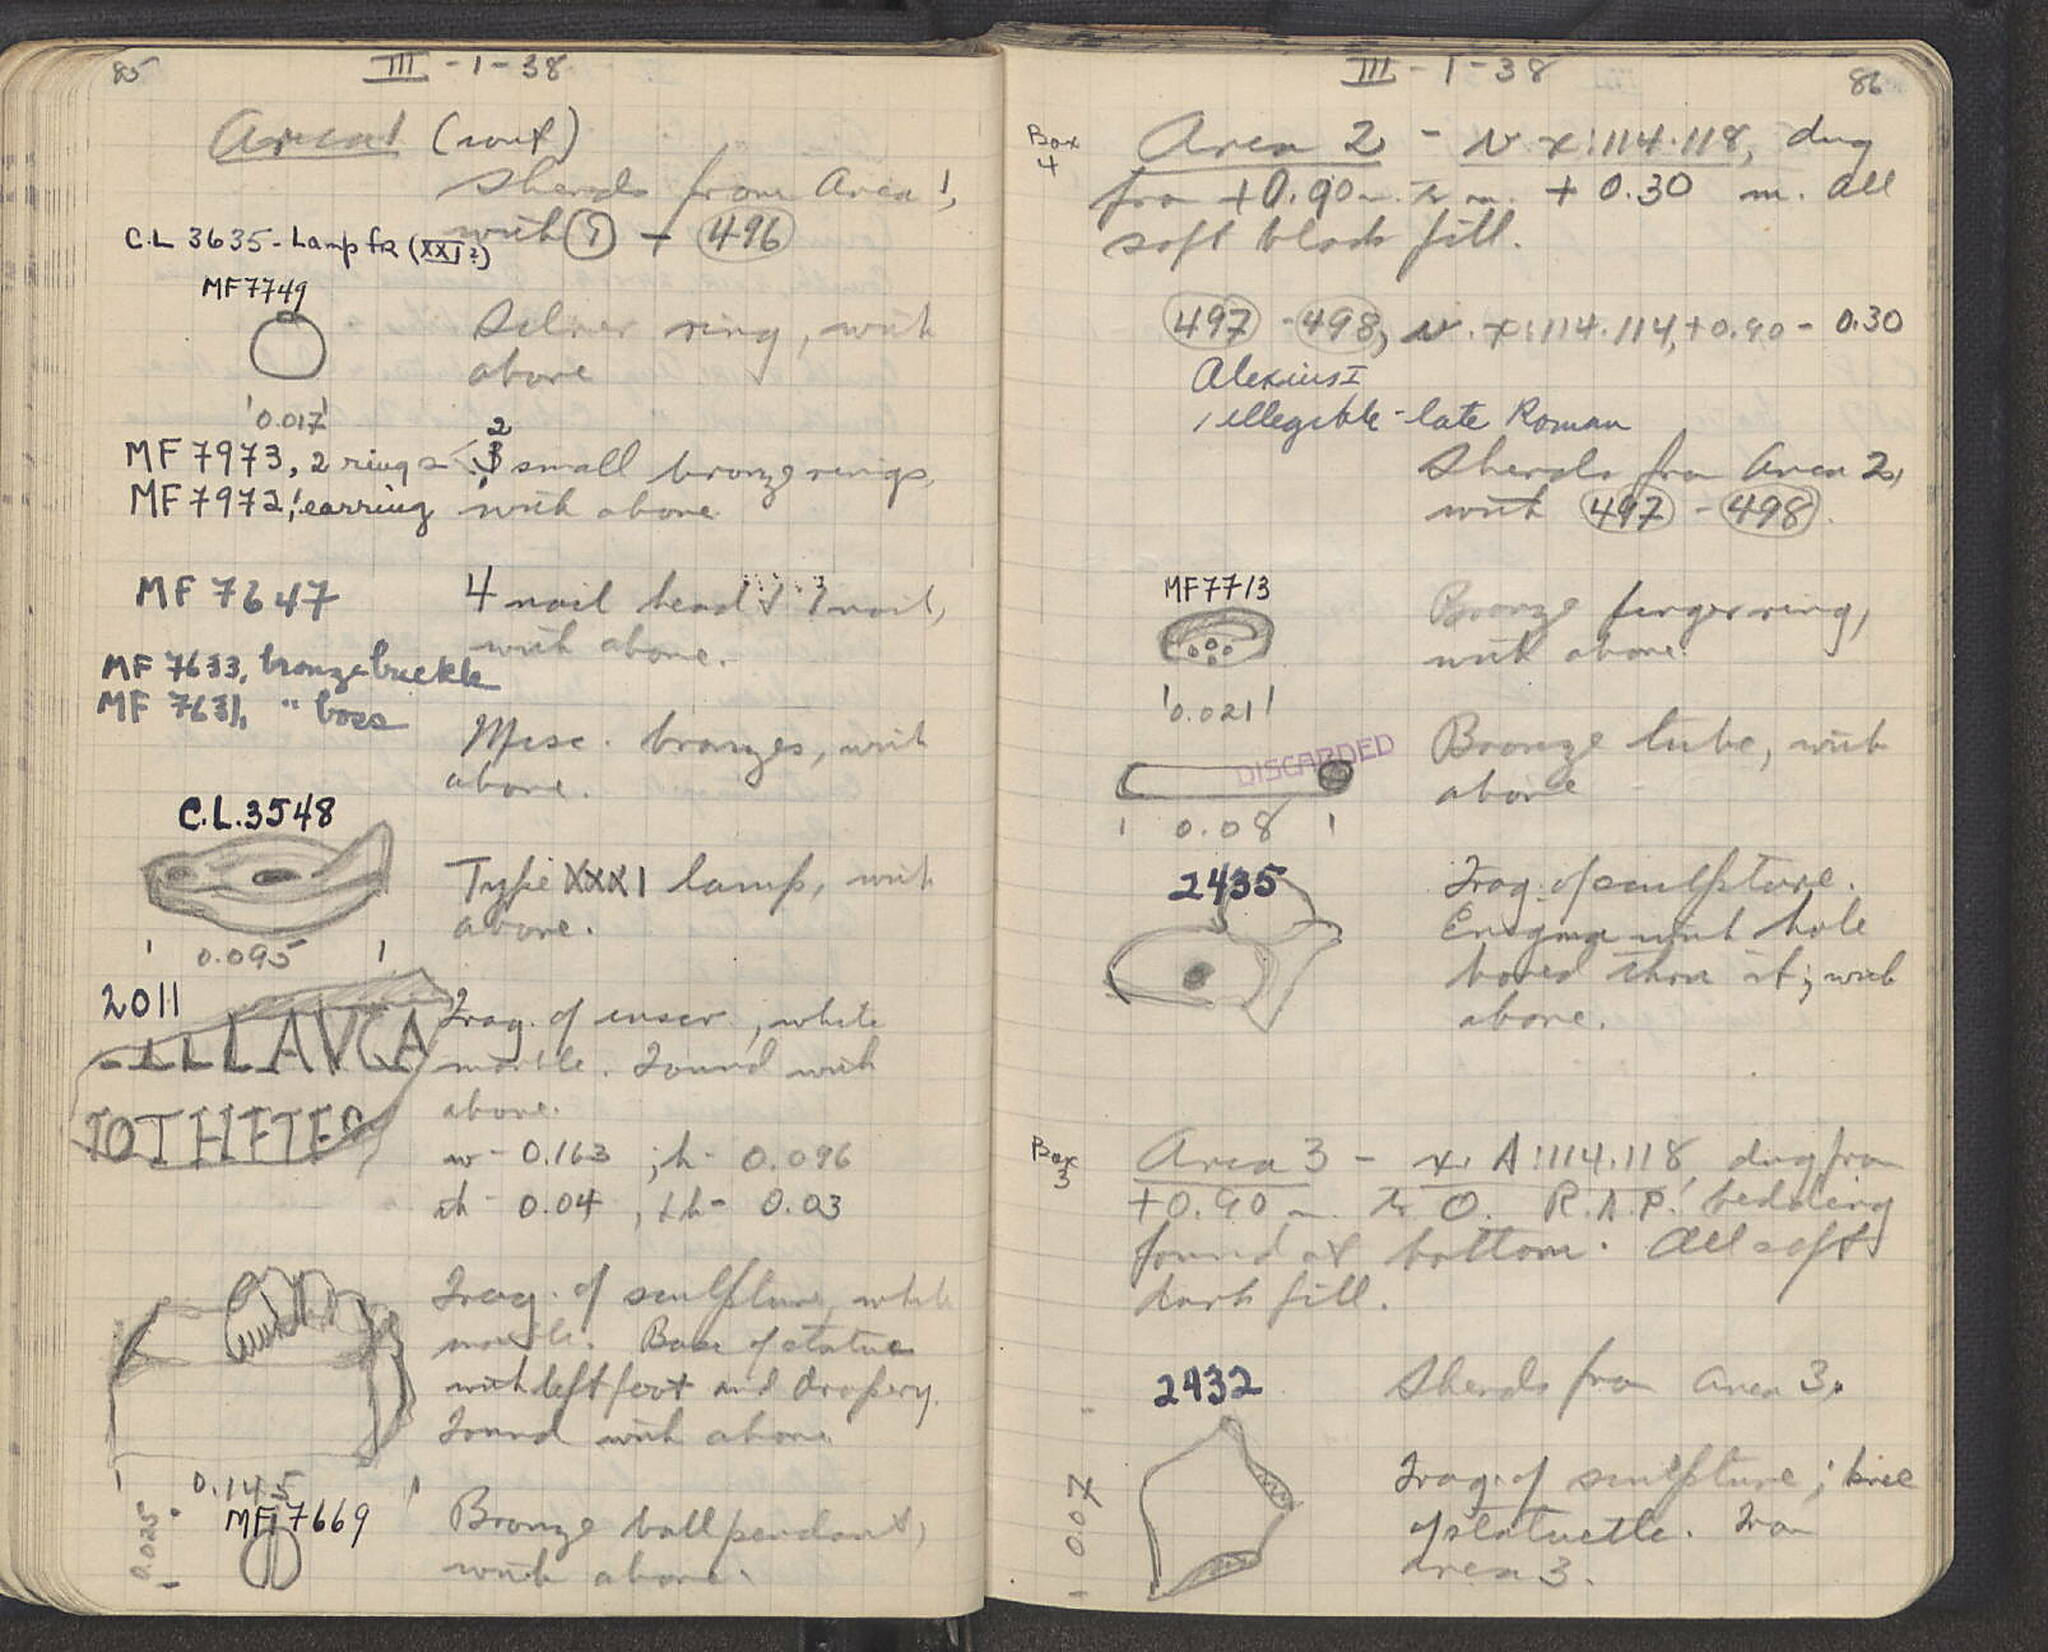 85
III - 1 - 38
Area 1 (cont)
Sherds from Area 1,
with 9 - 496
C.L 3635 - Lamp fr. (XXI?)
MF7749
Silver ring, with
above
0.017
MF 7973, 2 rings
2
3 small bronze rings,
MF 7972, 1 earring
with above
MF 7647
4 nail heads & 1 nail,
with above.
MF 7633, bronze buckle
MF 7631, " boss
Misc. bronzes, with
above.
C.L. 3548
Type XXXI lamp, with
above.
0.095
2011
LLLAVGA
TOTHETES
Frag. of inscr., white
marble. Found with
above.
w - 0.163 ; h - 0.096
th - 0.04 , lh - 0.03
Frag. of sculpture, white
marble. Base of statue
with left foot and drapery.
Found with above
0.145
0.025
MF 7669
Bronze ball pendant,
with above.
III - 1 - 38
86
Box
4
Area 2 - N x:114.118, dug
from +0.90 m. to + 0.30 m. All
soft black fill.
497 - 498, N. x:114.114, +0.90 - 0.30
Alexius I
1 illegible - late Roman
Sherds from Area 2,
with 497 - 498.
MF7713
Bronze finger ring,
with above.
0.021
DISCARDED
Bronze tube, with
above
0.08
2435
Frag. of sculpture.
Enigma with hole
bored thru it; with
above.
Box
3
Area 3 - x. A:114.118, dug from
+0.90 m. to 0. R.A.P. bedding
found at bottom. All soft
dark fill.
2432
Sherds from area 3.
0.07
Frag. of sculpture; knee
of statuette. From
area 3.